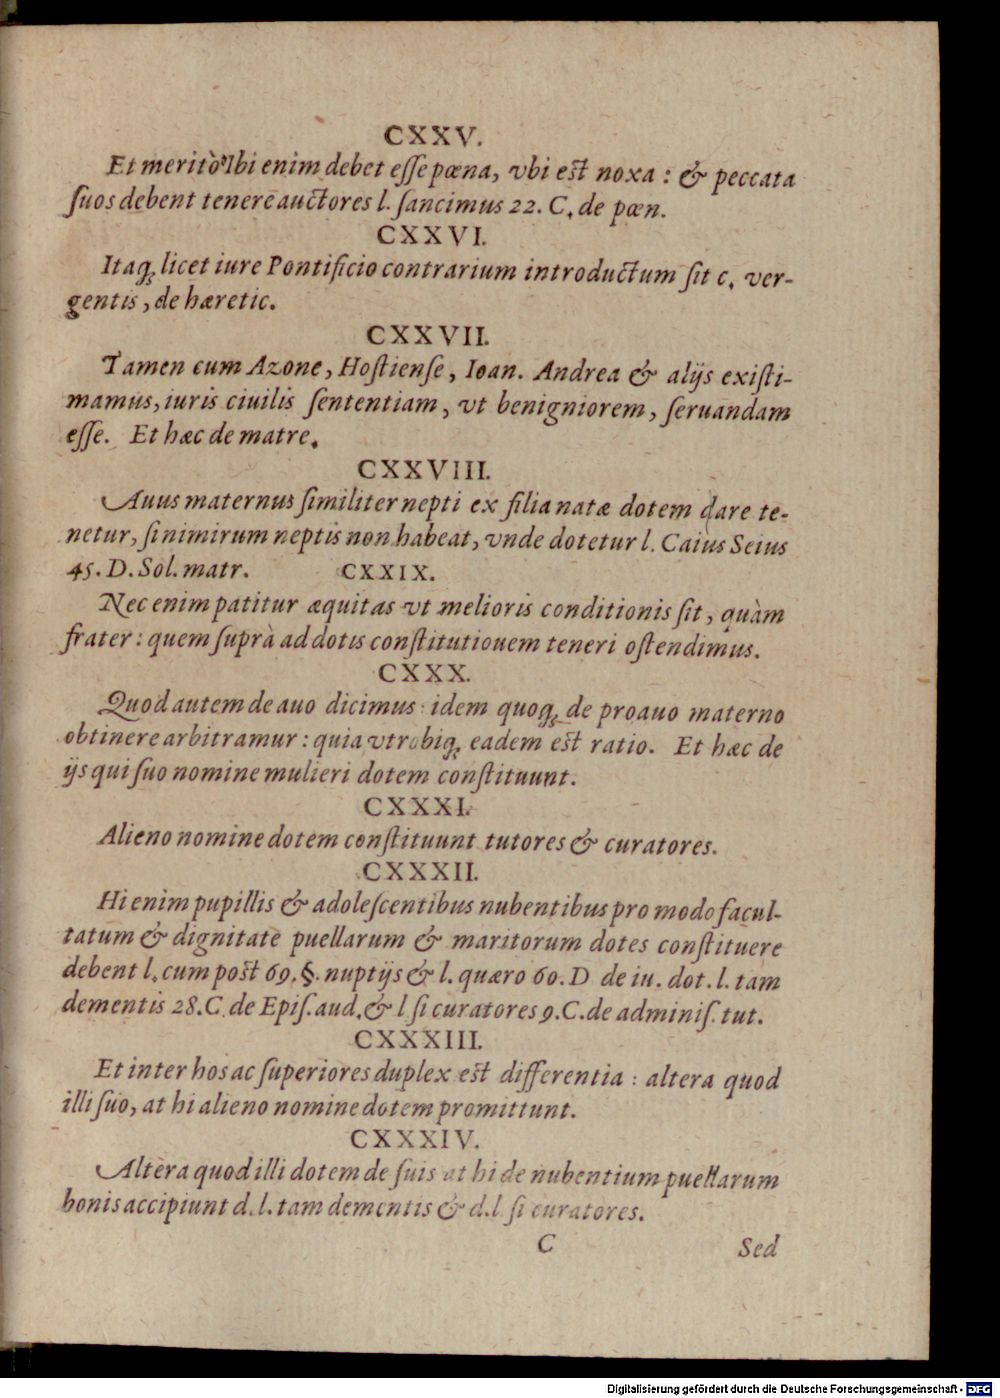 CXXV.
Et meritò Ibi enim debet eſſe pœna, vbi est noxa : & peccata
ſuos debent tenere auctores l. ſancimus 22. C. de pœn.
CXXVI.
Itaq; licet iure Pontificio contrarium introductum ſit c. ver-
gentis, de hæretic.
CXXVII.
Tamen cum Azone, Hoſtienſe, Ioan. Andrea & alijs exiſti-
mamus, iuris ciuilis ſententiam, vt benigniorem, ſeruandam
eſſe. Et hæc de matre.
CXXVIII.
Auus maternus ſimiliter nepti ex filia natæ dotem dare te-
netur, ſi nimirum neptis non habeat, vnde dotetur l. Caius Seius
45. D. Sol. matr. CXXIX.
Nec enim patitur æquitas vt melioris conditionis ſit, quàm
frater : quem ſuprà ad dotis conſtitutiouem teneri oſtendimus.
CXXX.
Quod autem de auo dicimus idem quoq; de proauo materno
obtinere arbitramur : quia vtrobiq; eadem est ratio. Et hæc de
ijs qui ſuo nomine mulieri dotem conſtituunt.
CXXXI.
Alieno nomine dotem conſtituunt tutores & curatores.
CXXXII.
Hi enim pupillis & adoleſcentibus nubentibus pro modo facul-
tatum & dignitate puellarum & maritorum dotes conſtituere
debent l. cum post 69. §. nuptijs & l. quæro 60. D de iu. dot. l. tam
dementis 28. C. de Epiſ. aud. & l ſi curatores 9. C. de adminiſ. tut.
CXXXIII.
Et inter hos ac ſuperiores duplex est differentia : altera quod
illi ſuo, at hi alieno nomine dotem promittunt.
CXXXIV.
Altera quod illi dotem de ſuis at hi de nubentium puellarum
bonis accipiunt d. l. tam dementis & d. l ſi curatores.
C Sed
Digitalisierung gefördert durch die Deutsche Forschungsgemeinschaft - DFG